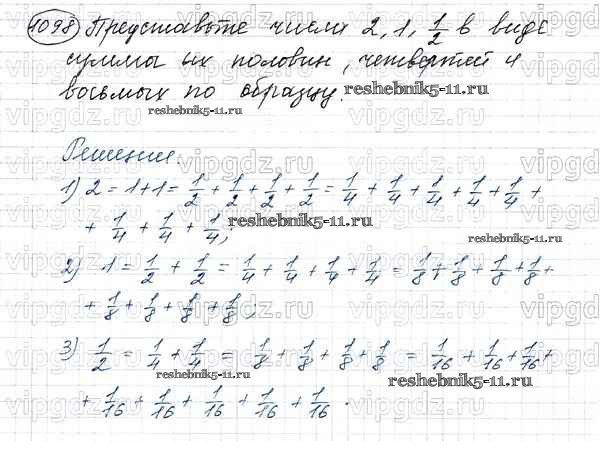 1098 Представьте числа 2, 1, 1/2 в виде
суммы их половин, четвертей и
восьмых по образцу.
reshebnik5-11.ru
Решение.
1) 2 = 1+1 = 1/2 + 1/2 + 1/2 + 1/2 = 1/4 + 1/4 + 1/4 + 1/4 + 1/4 +
+ 1/4 + 1/4 + 1/4;
2) 1 = 1/2 + 1/2 = 1/4 + 1/4 + 1/4 + 1/4 = 1/8 + 1/8 + 1/8 + 1/8 +
+ 1/8 + 1/8 + 1/8 + 1/8;
3) 1/2 = 1/4 + 1/4 = 1/8 + 1/8 + 1/8 + 1/8 = 1/16 + 1/16 + 1/16 +
+ 1/16 + 1/16 + 1/16 + 1/16 + 1/16.
vipgdz.ru